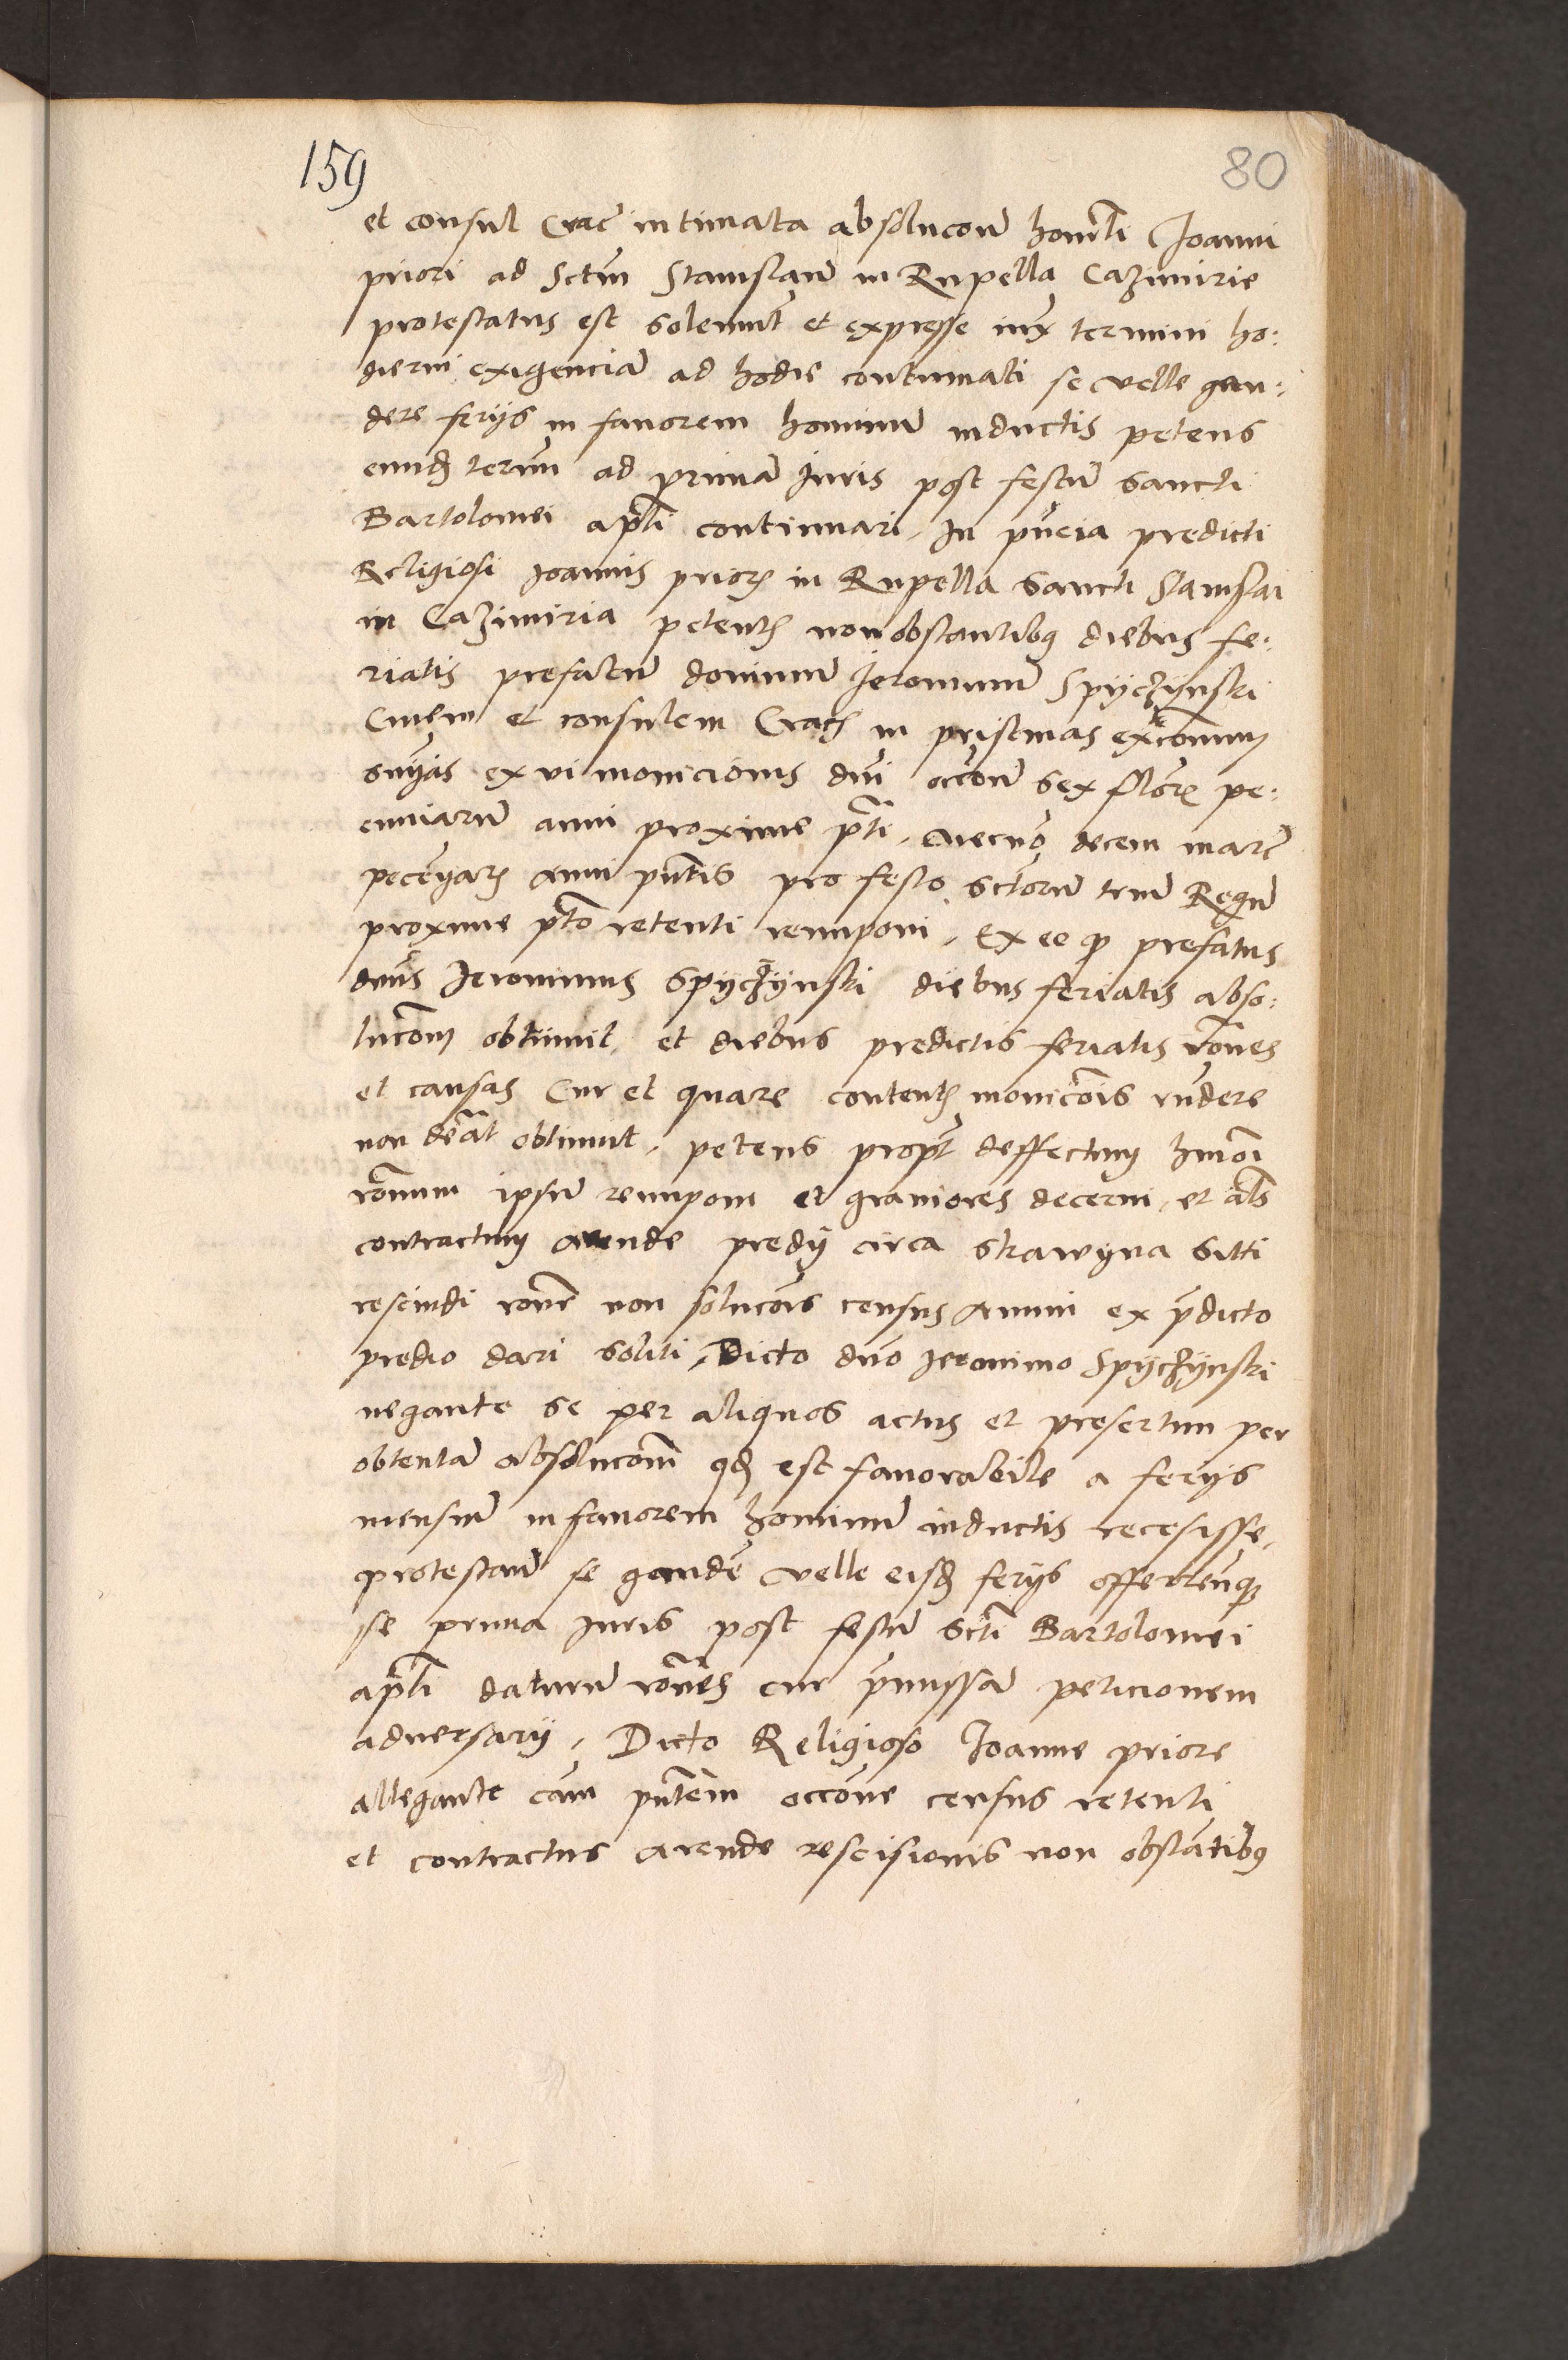 159
80
et consul Crac intimata absolucone honorli Joanni
priori ad Sctm Stanislaum in Rupella Cazimirie
protestatus est solemnit et expresse iux termini ho:
dierni exigenciam ad hodie continuati se velle gau:
dere ferijs in favorem hominum inductis petens
eund termm ad primam Juris post festum Sancti
Bartolomei apli continuari. In pncia predicti
Religiosi Joannis prioris in Rupella Sancti Stanislai
in Cazimiria petentis non obstantibus diebus fe:
riatis prefatum dominum Jeronimum Spyczynski
Civem et consulem Crac in pristinas excommuni
snijas ex vi monicionis dni occone sex floren pe:
cuniarum anni proxime pti. Necno decem marc
peccuniar anni pntis pro festo Sctorum trium Regum
proxime pto retenti reimponi. Ex eo quod prefatus
dnus Jeronimus Spyczynski diebus feriatis abso:
lucom obtinuit. et diebus predictis feriatis rones
et causas Cur et quare contentis monicois rndere
non debeat obtinuit. petens propt deffectum hmoi
ronum ipsum reimponi et graviores decerni. et als
contractum arende predij circa Strawyna sitti
rescindi rone non solucois census annui ex predicto
predio dari soliti. Dicto dno Jeronimo Spyczynski
negante se per aliquos actus et presertim per
obtentam absolucom quod est favorabile a ferijs
messium in favorem hominum inductis recesisse.
protestan se gaudere velle eisd ferijs offerrenque
se prima Juris post festum Scti Bartolomei
apli daturum rones cur premissam peticionem
adversarij. Dicto Religioso Joanne priore
allegante cam pntem occone census retenti
et contractus arende rescisionis non obstantibus